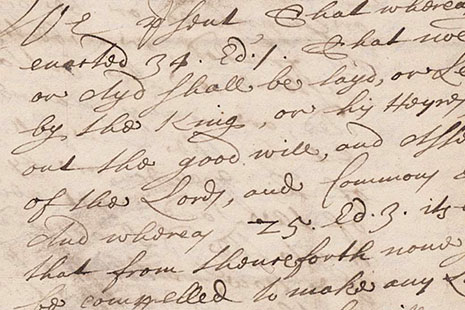 We p'sent That wherea
enacted 34. Ed: 1. That noe
or Ayd shall be layd, or Le
by the King, or his Heyres
out the good will, and Asse
of the Lords, and Commons
And whereas 25. Ed. 3. its
that from thenceforth none
be compelled to make any L